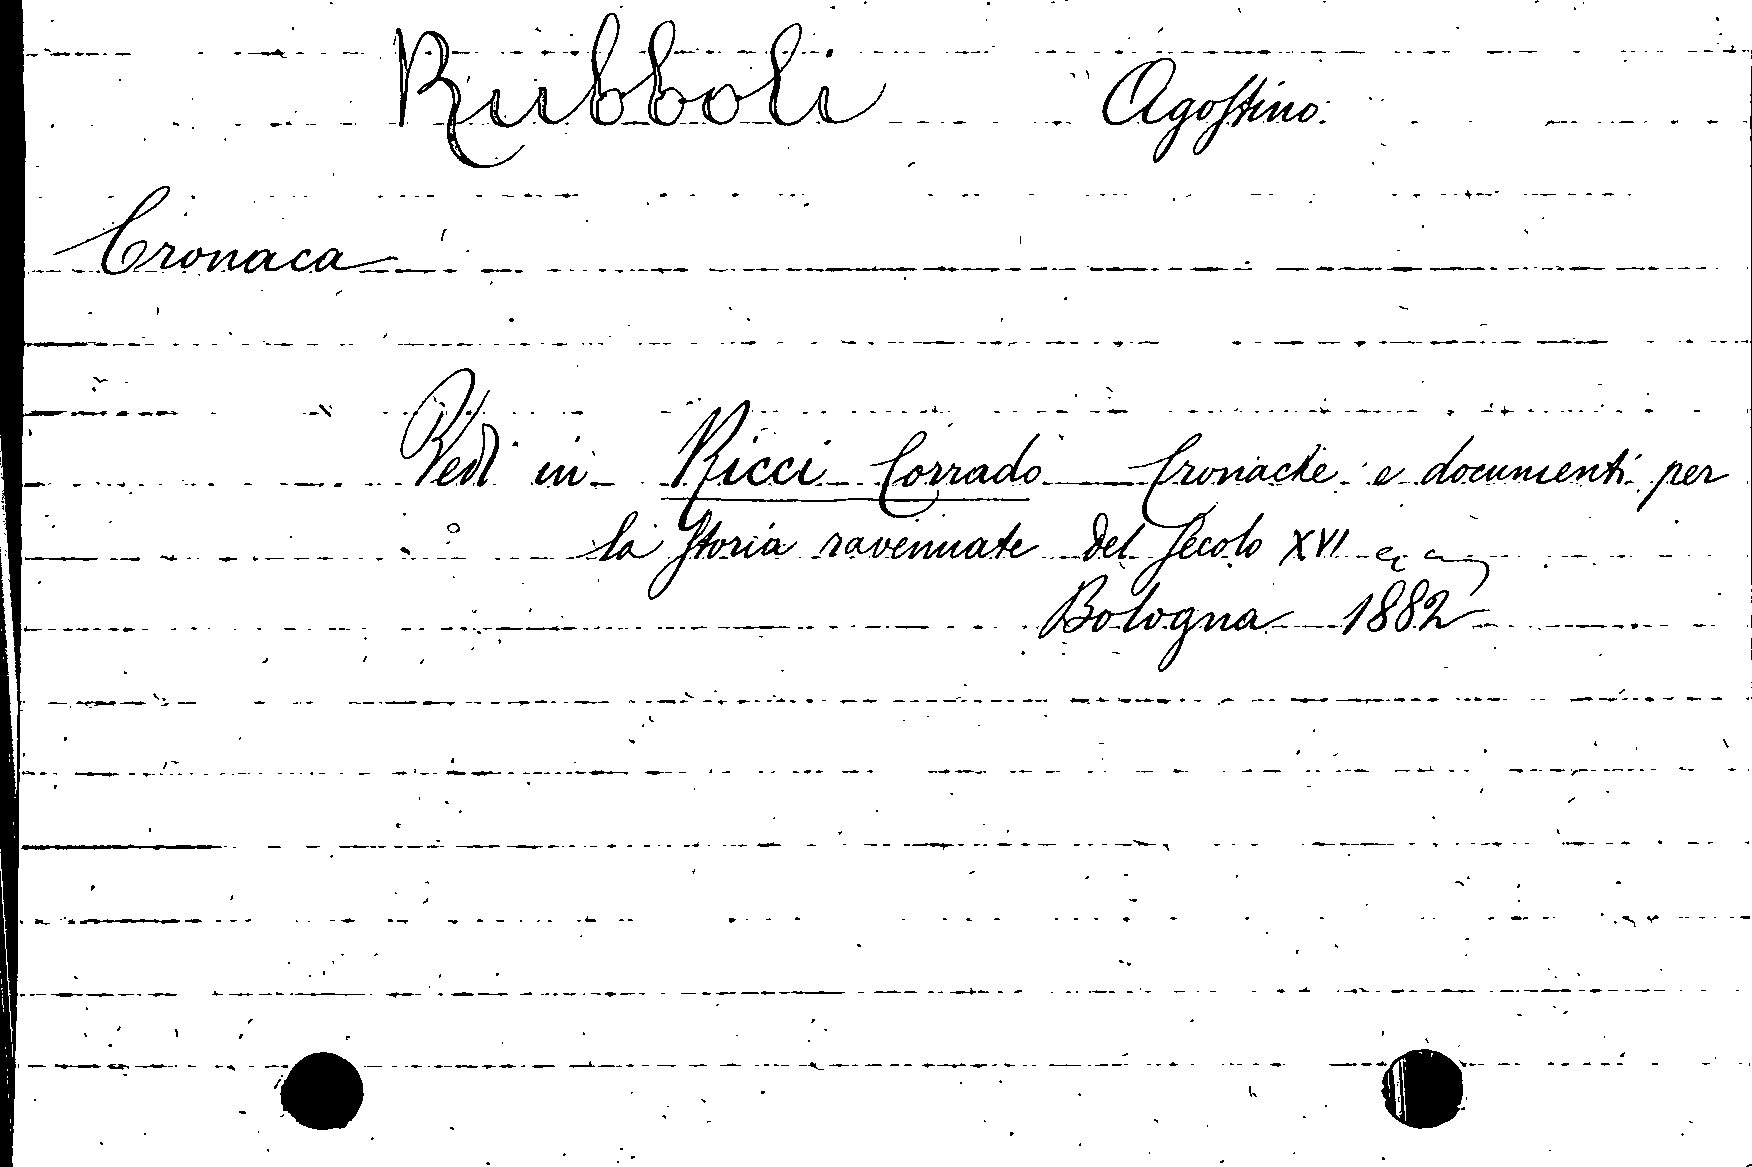 Rubboli Agostino.
Cronaca
Vedi in Ricci Corrado Cronache e documenti per
la storia ravennate del secolo XVI
Bologna 1882